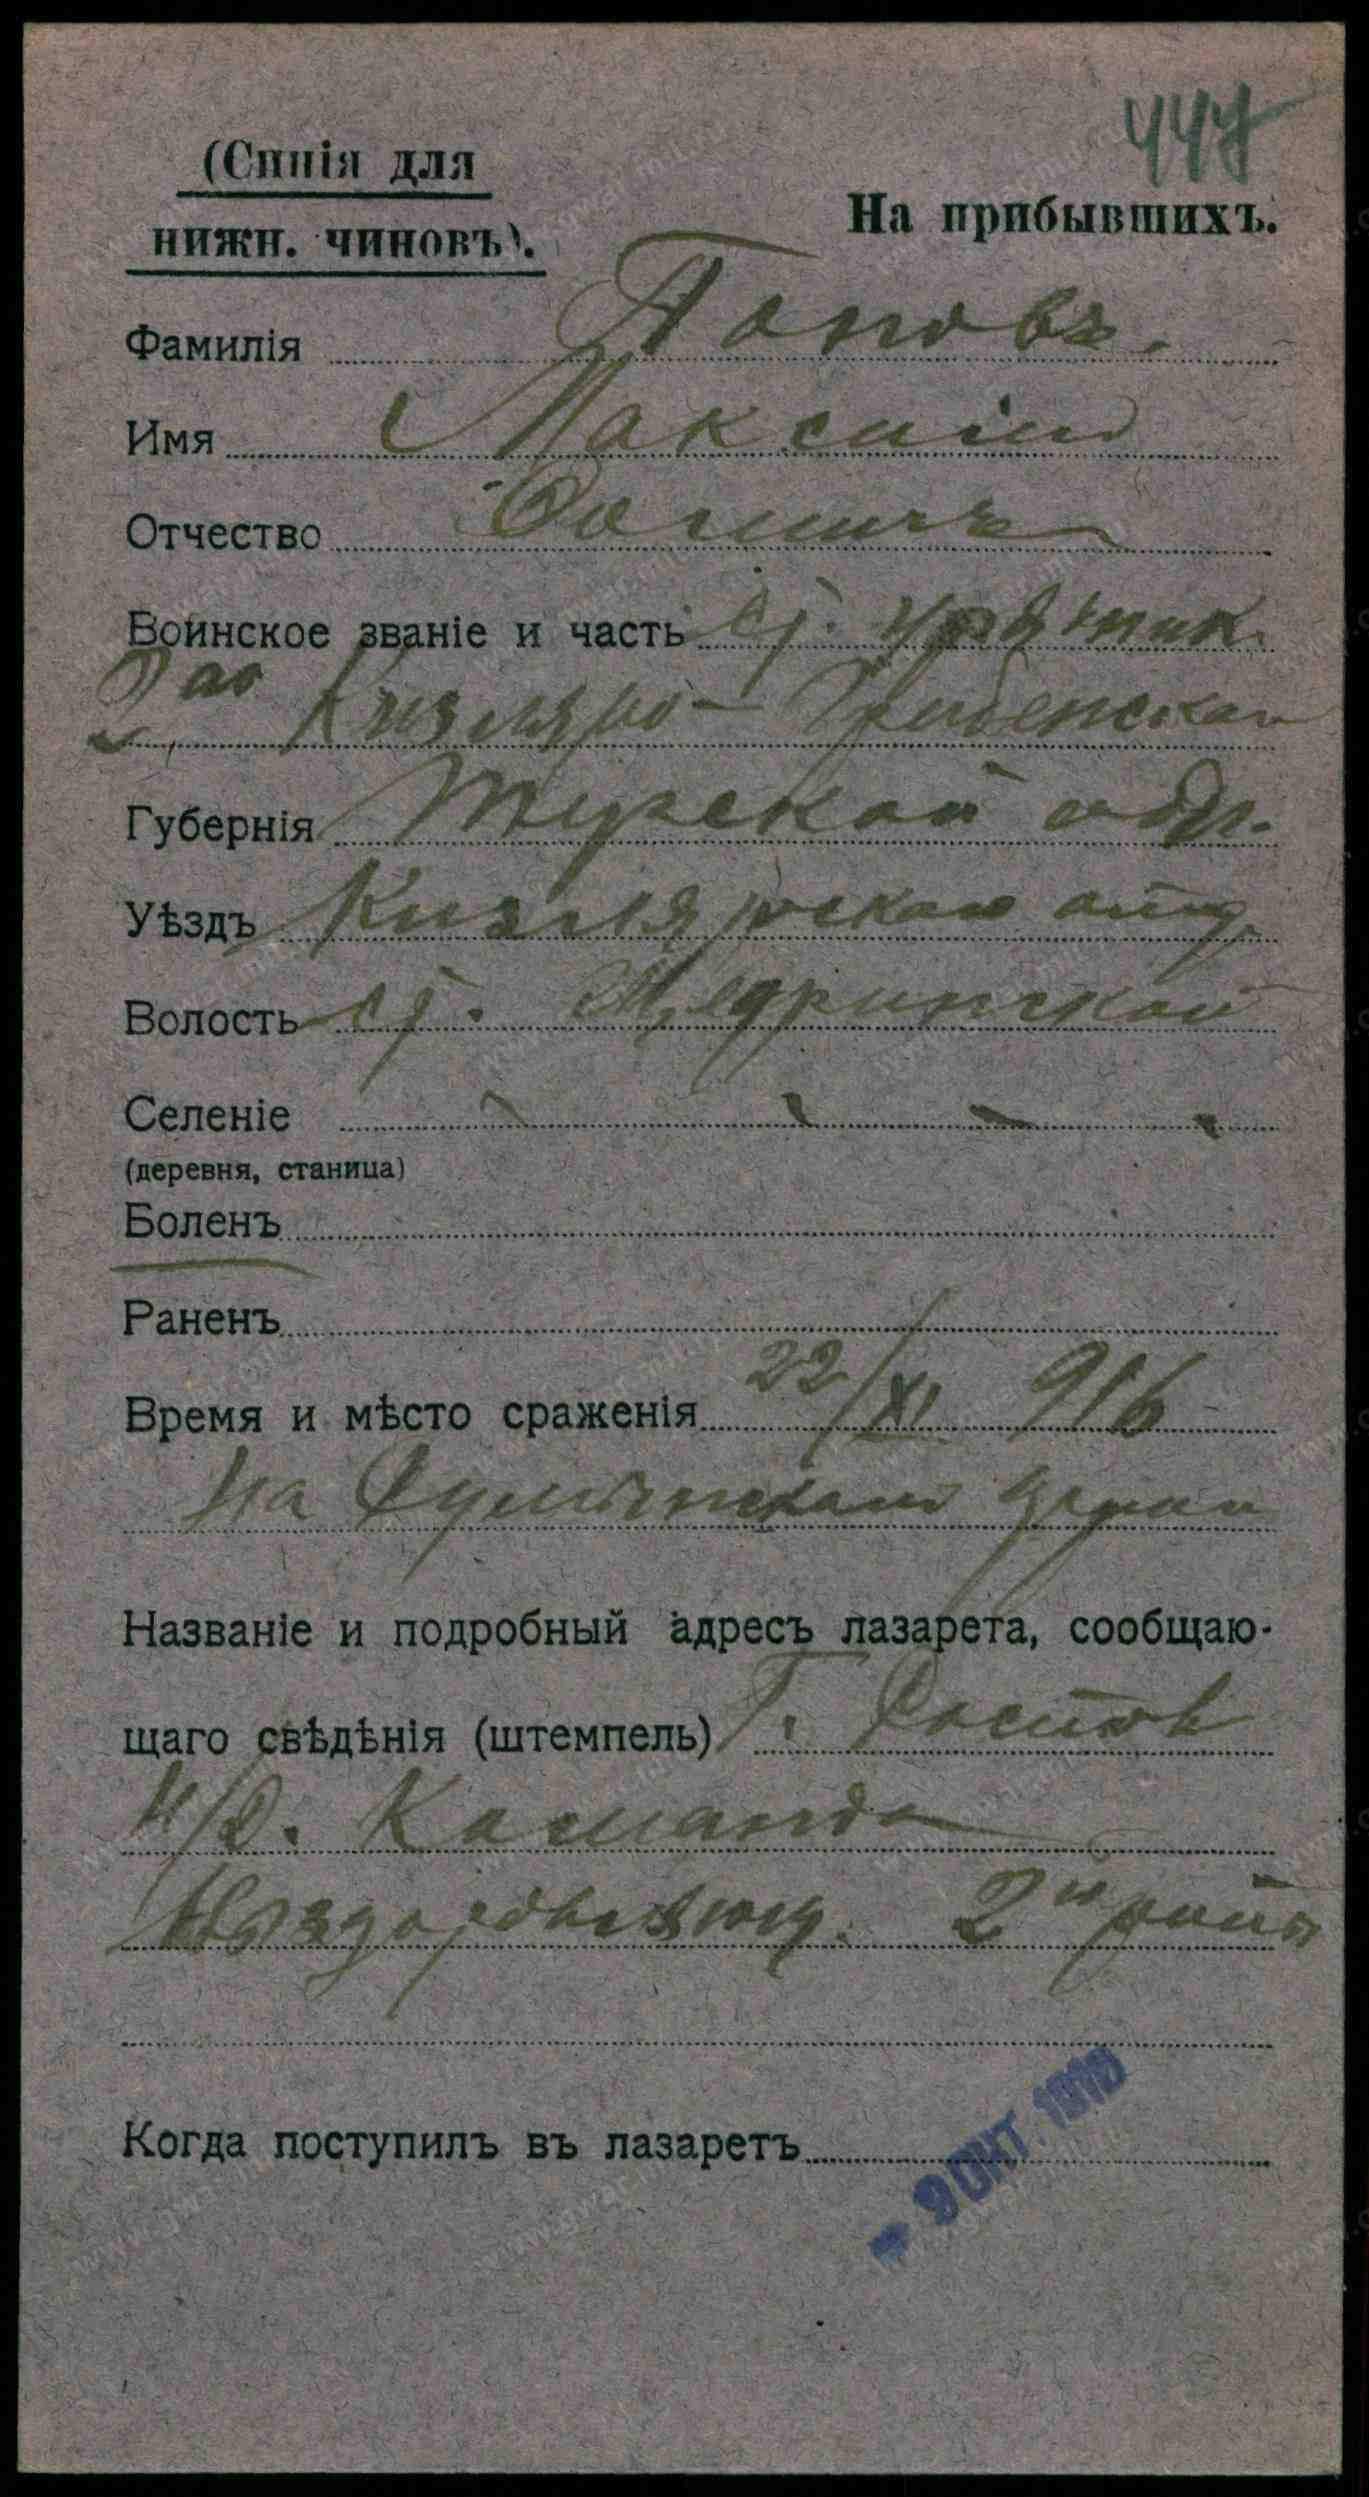 447
(Синія для
нижн. чиновъ).
На прибывшихъ.
Фамилія Поповъ.
Имя Максимъ
Отчество Фомичъ
Воинское званіе и часть ст. урядник
2го Кизляро-Гребенскаго
Губернія Терской обл.
Уѣздъ Кизлярскаго отд.
Волость ст. Щедринской
Селеніе
(деревня, станица)
Боленъ
Раненъ
Время и мѣсто сраженія 22/XI 916
на
Названіе и подробный адресъ лазарета, сообщаю-
щаго свѣдѣнія (штемпель) г. Ростов
н/Д. Команда
Выздоравливающ. 2й
Когда поступилъ въ лазаретъ
- 9 ОКТ. 1916